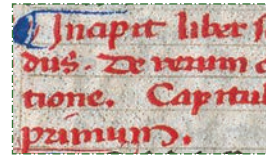 Incipit liber s
dus. De rerum c
tione. Capitul
primum.